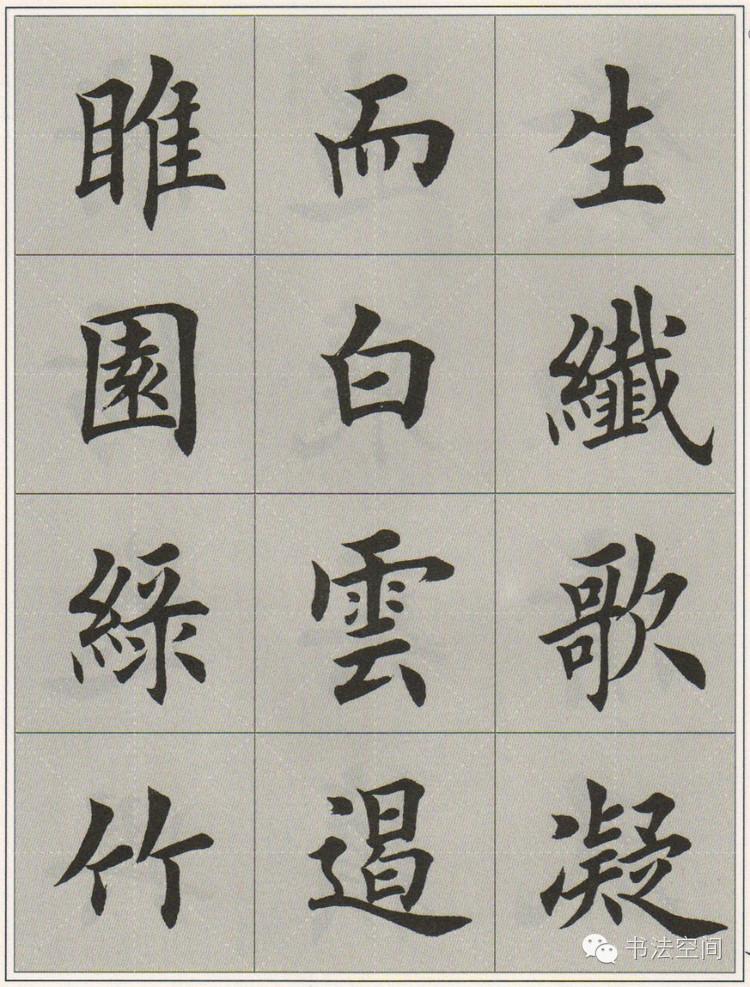 生纖歌凝
而白雲遏
睢園綵竹
书法空间